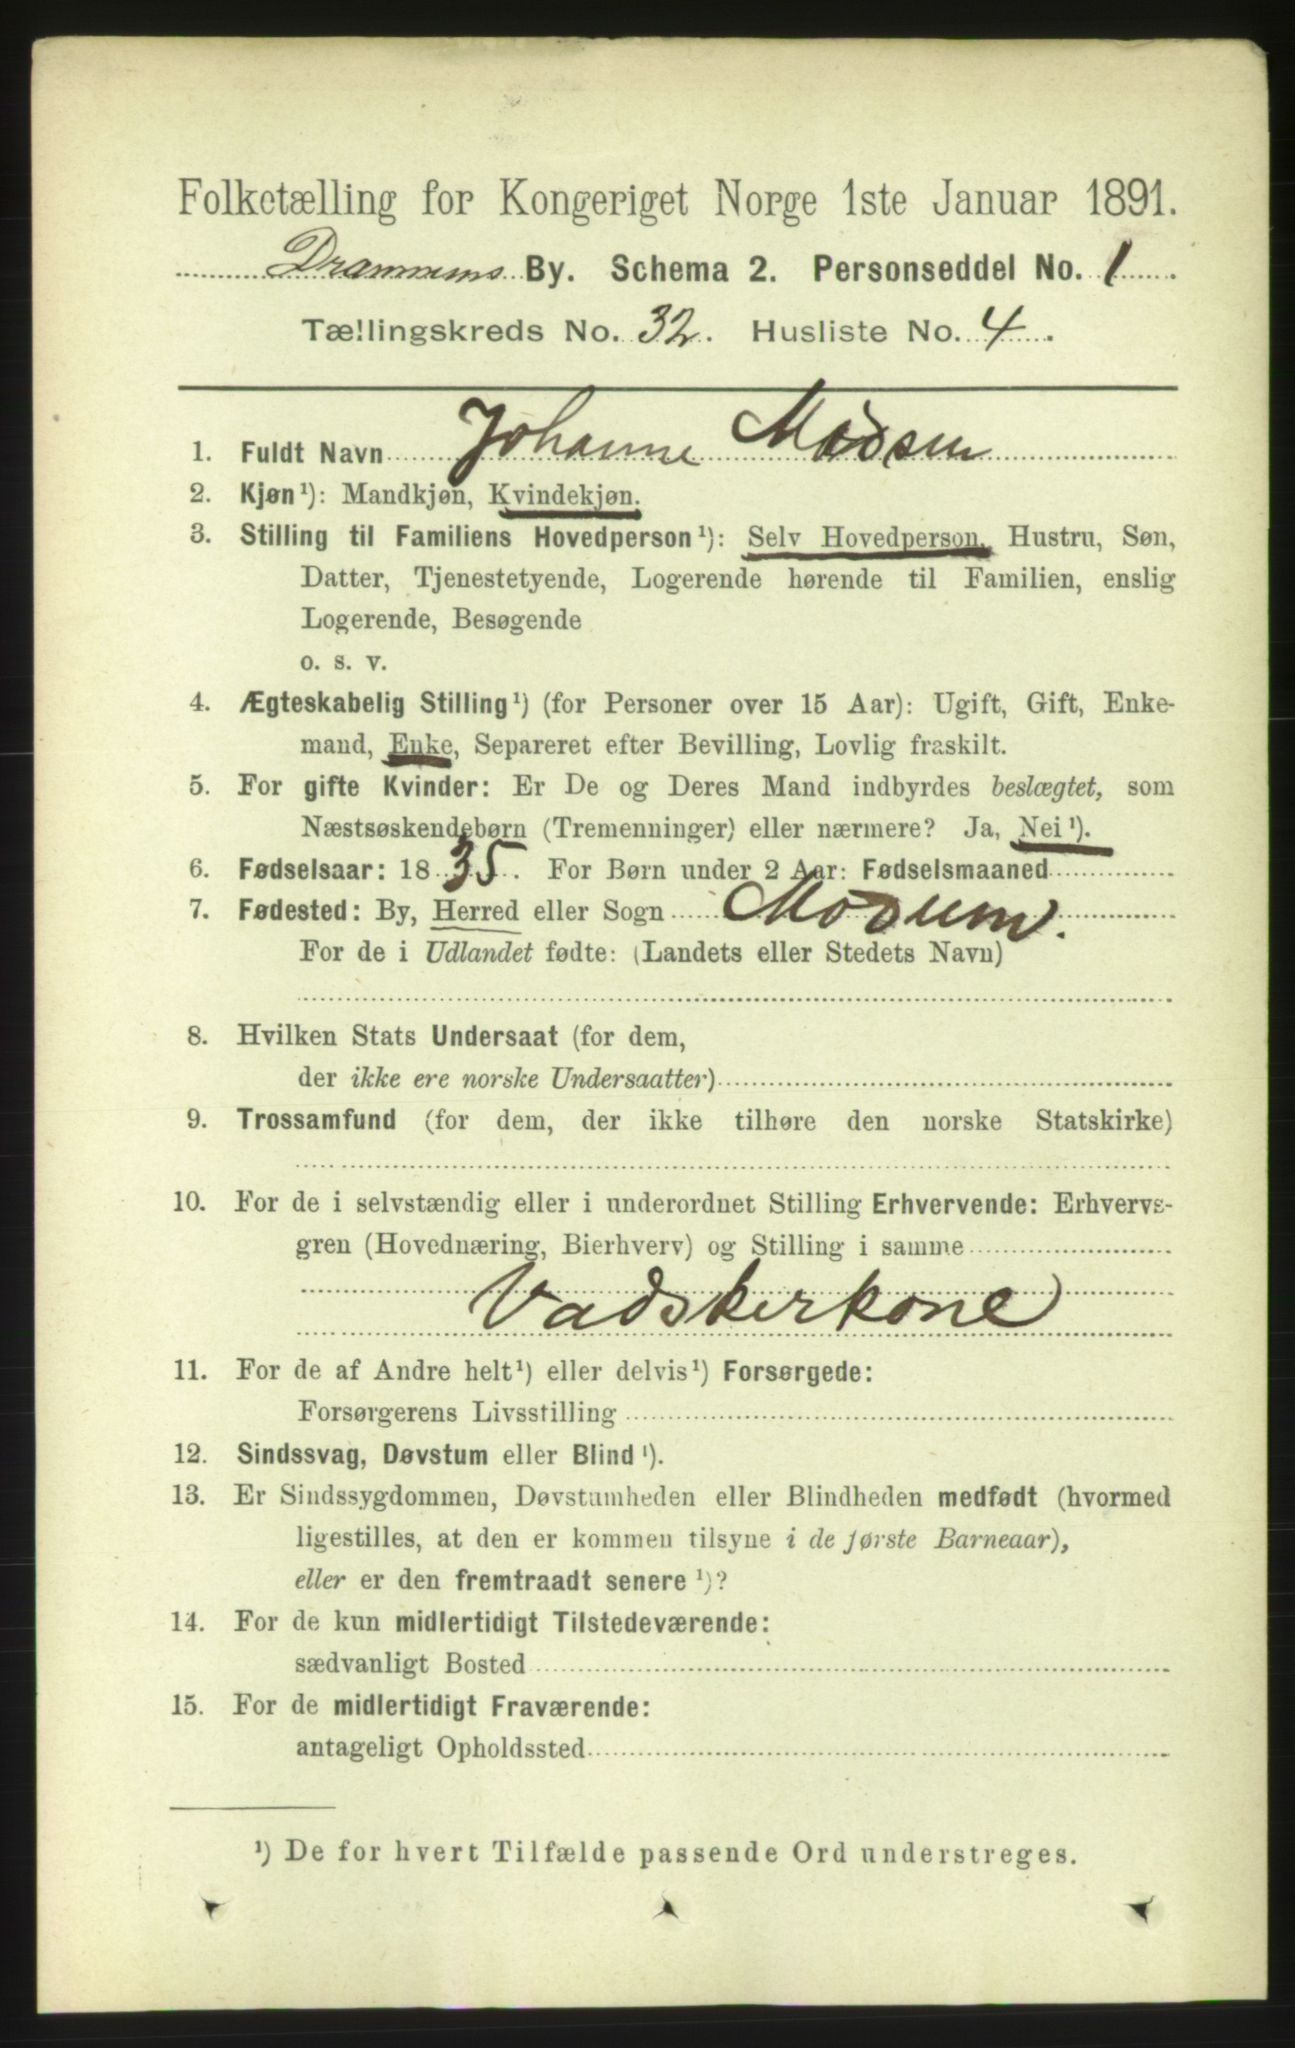 Folketælling for Kongeriget Norge 1ste Januar 1891.
Drammens By. Schema 2. Personseddel No. 1.
Tællingskreds No. 32. Husliste No. 4.
1. Fuldt Navn Johanne Madsen
2. Kjøn¹): Mandkjøn, Kvindekjøn.
3. Stilling til Familiens Hovedperson¹): Selv Hovedperson, Hustru, Søn,
Datter, Tjenestetyende, Logerende hørende til Familien, enslig
Logerende, Besøgende
o. s. v.
4. Ægteskabelig Stilling¹) (for Personer over 15 Aar): Ugift, Gift, Enke-
mand, Enke, Separeret efter Bevilling, Lovlig fraskilt.
5. For gifte Kvinder: Er De og Deres Mand indbyrdes beslægtet, som
Næstsøskendebørn (Tremenninger) eller nærmere? Ja, Nei¹).
6. Fødselsaar: 1835. For Børn under 2 Aar: Fødselsmaaned
7. Fødested: By, Herred eller Sogn Modum.
For de i Udlandet fødte: (Landets eller Stedets Navn)
8. Hvilken Stats Undersaat (for dem,
der ikke ere norske Undersaatter)
9. Trossamfund (for dem, der ikke tilhøre den norske Statskirke)
10. For de i selvstændig eller i underordnet Stilling Erhvervende: Erhvervs-
gren (Hovednæring, Bierhverv) og Stilling i samme
Vadskerkone
11. For de af Andre helt¹) eller delvis¹) Forsørgede:
Forsørgerens Livsstilling
12. Sindssvag, Døvstum eller Blind¹).
13. Er Sindssygdommen, Døvstumheden eller Blindheden medfødt (hvormed
ligestilles, at den er kommen tilsyne i de første Barneaar),
eller er den fremtraadt senere¹)?
14. For de kun midlertidigt Tilstedeværende:
sædvanligt Bosted
15. For de midlertidigt Fraværende:
antageligt Opholdssted
¹) De for hvert Tilfælde passende Ord understreges.